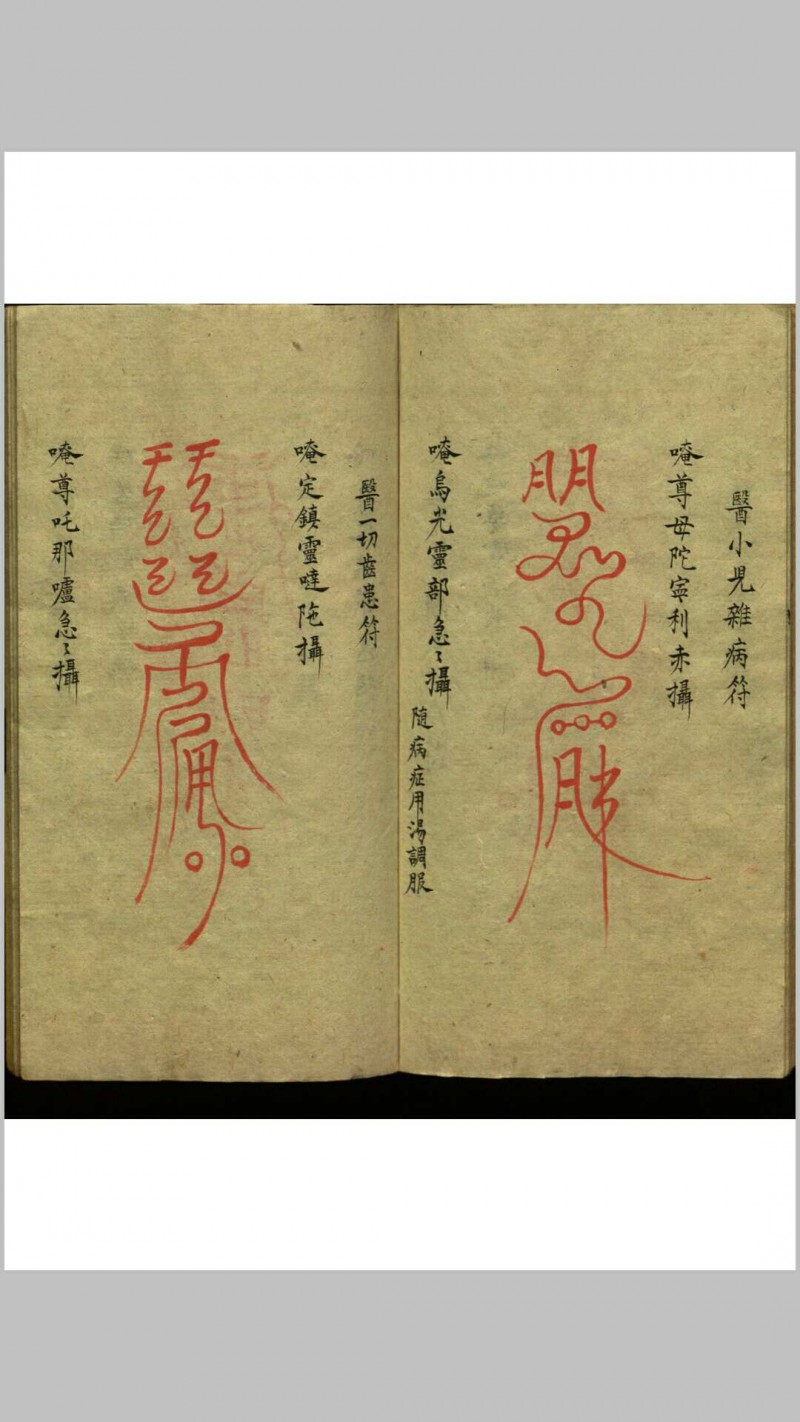 醫小児雜病符
唵尊母陀寕利赤攝
唵烏光靈部急〻攝
随病症用湯調服
醫一切齒患符
唵定鎮靈噠陁攝
唵尊吒那嚧急〻攝